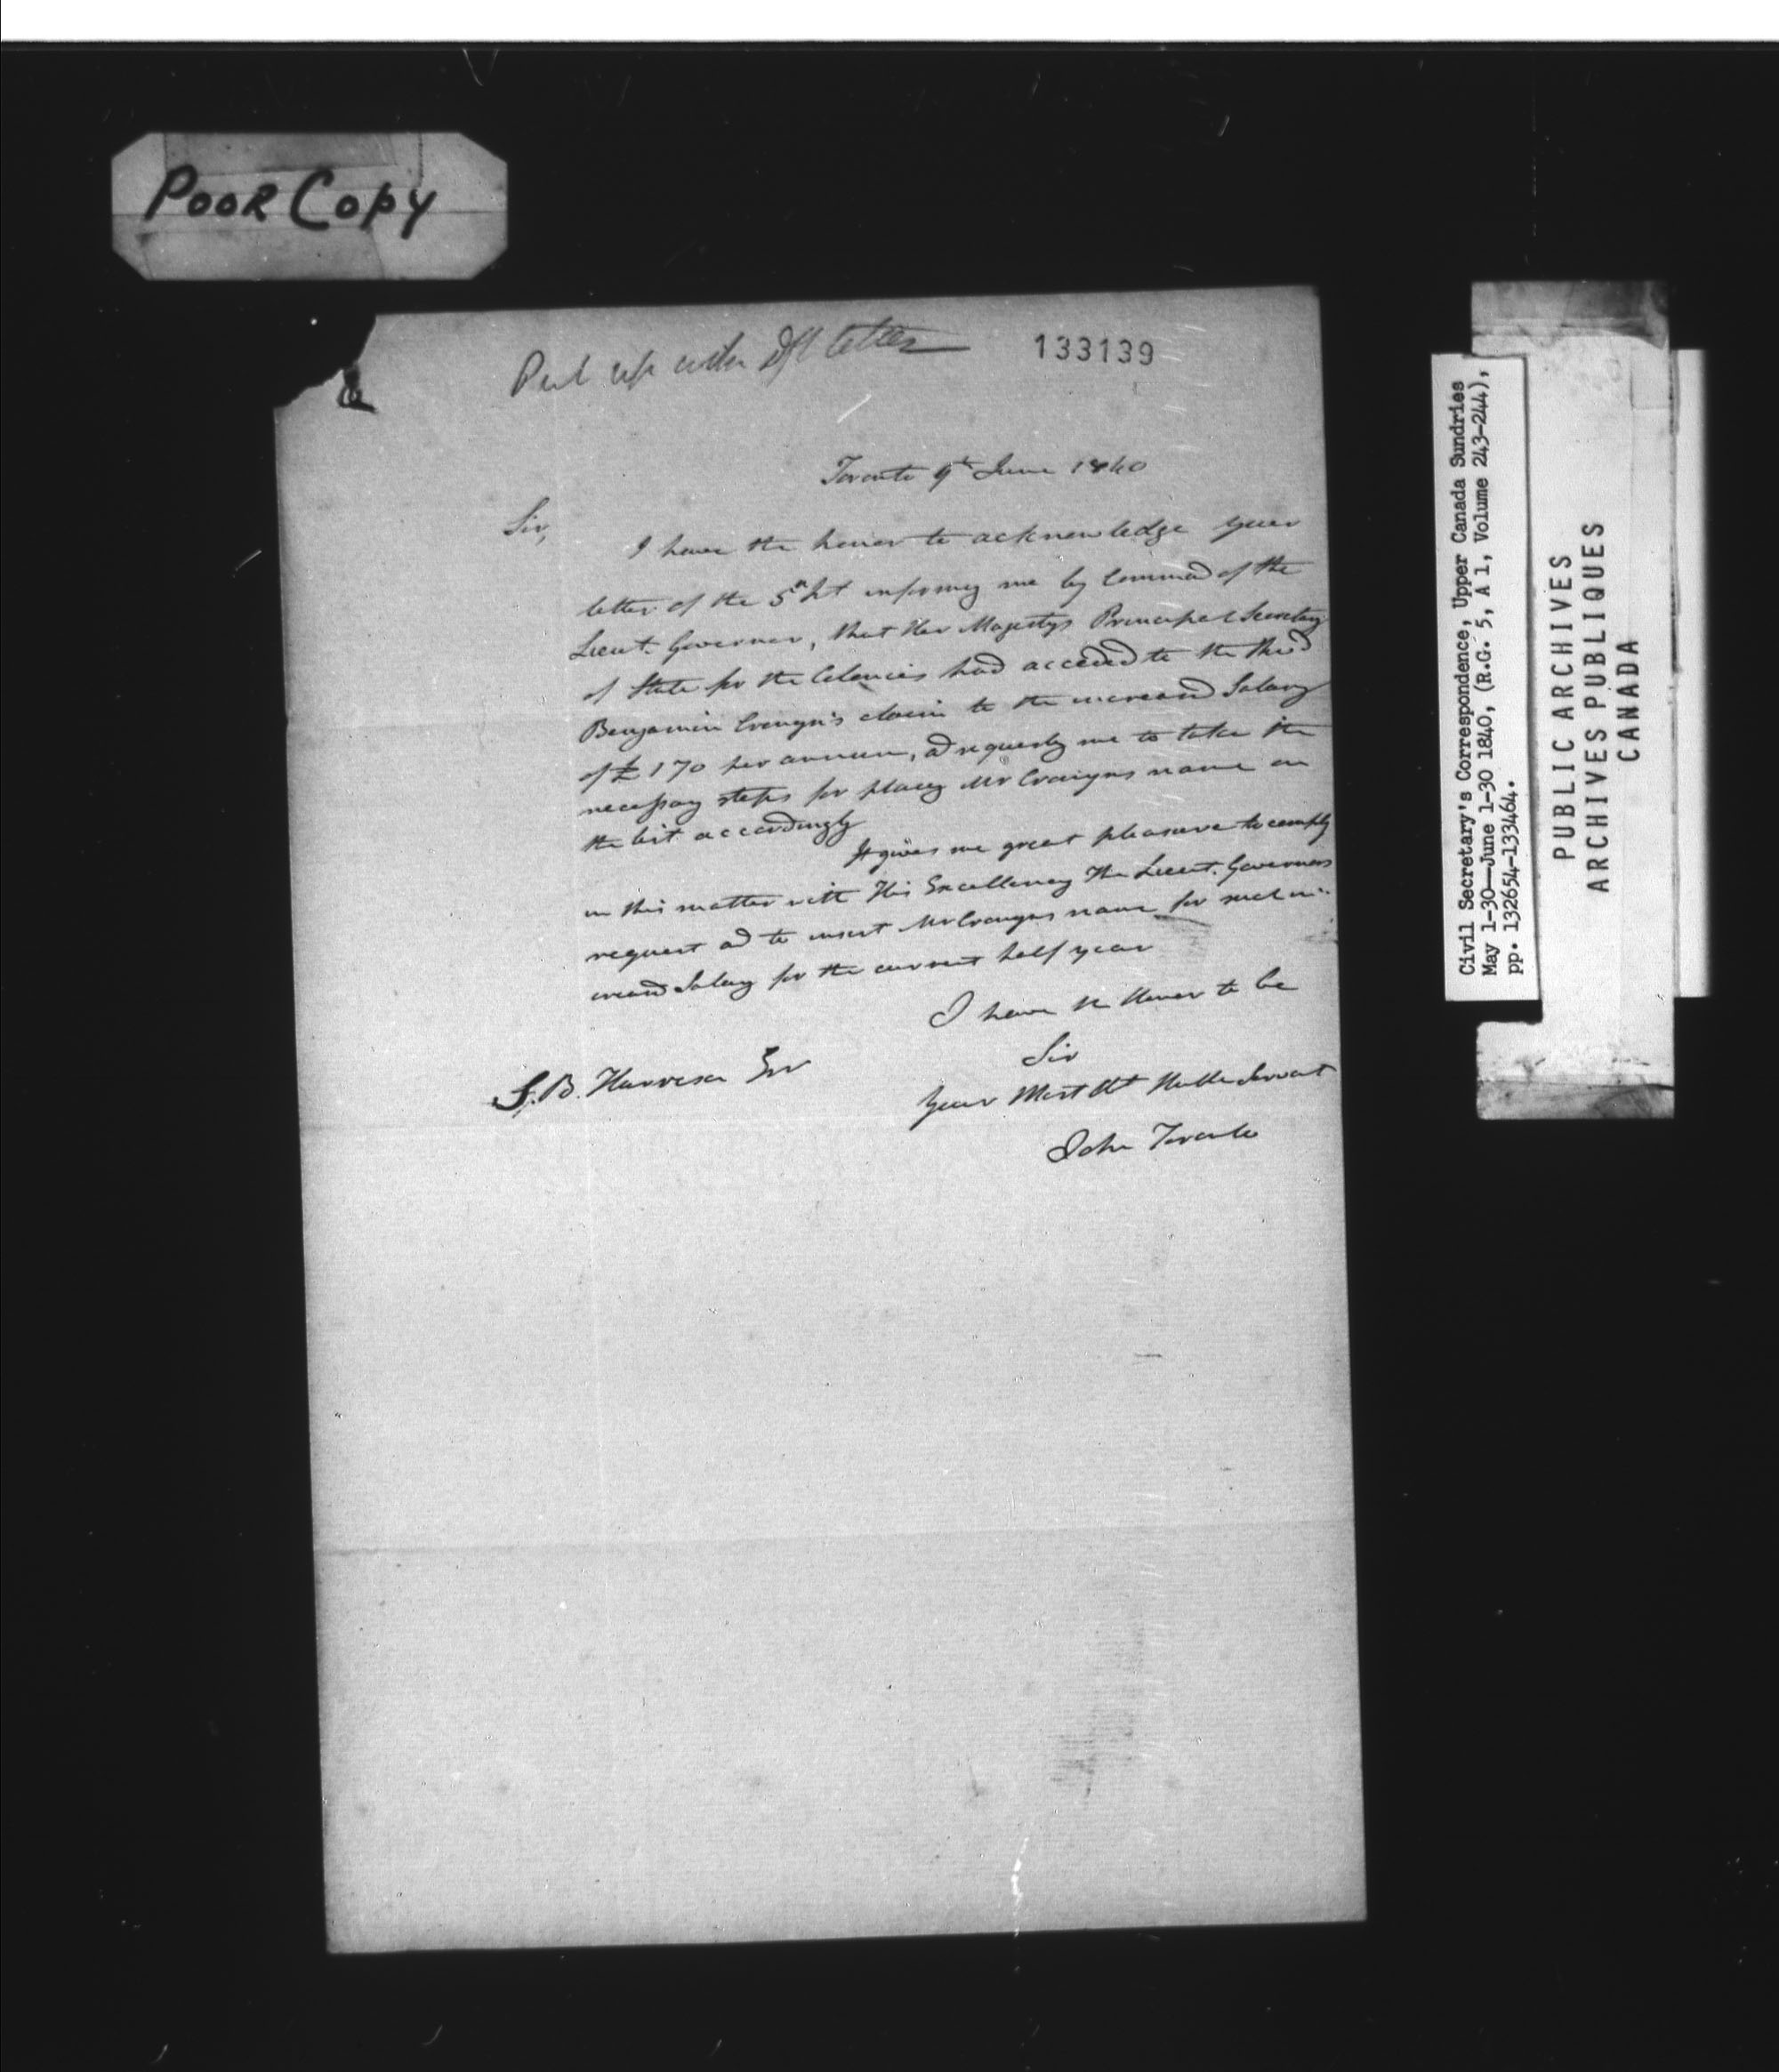 POOR COPY
Put up with Dft letter
133139
Toronto 9th June 1840
Sir,
I have the honor to acknowledge your
letter of the 5th Int informg me by Command of the
Lieut. Governor, that Her Majestys Principal Secretary
of State for the Colonies had acceeded to the
Benjamin Cronyn's claim to the increased Salary
of £170 per annum, ad requestg me to take the
necessary steps for placeg Mr Cronyns name on
the list accordingly
It gives me great pleasure to comply
in this matter with His Excellency The Lieut. Governors
request ad to insert Mr Cronyns name for such in-
creased Salary for the current half year
I have the Honor to be
Sir
Your Most Obt Humble Servant
John Toronto
S.B. Harrison Esr
Civil Secretary's Correspondence, Upper Canada Sundries
May 1-30—June 1-30 1840, (R.G. 5, A 1, Volume 243-244),
pp. 132654-133464.
PUBLIC ARCHIVES
ARCHIVES PUBLIQUES
CANADA